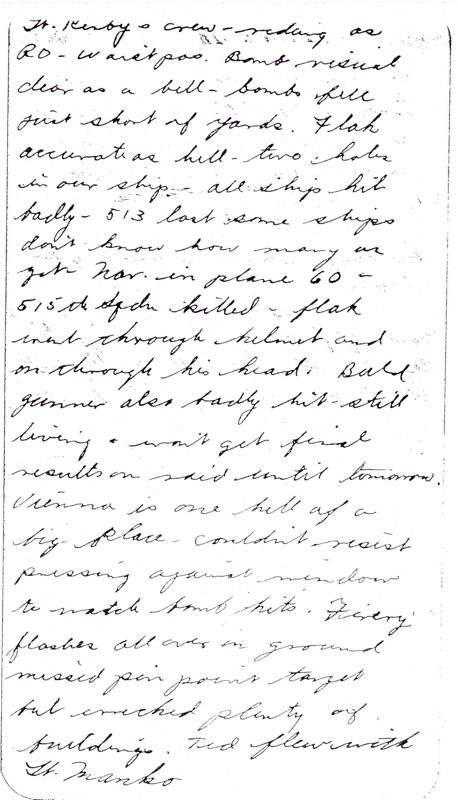 Lt. Kerby's crew - riding as
RO - waist pos. Bomb visual
clear as a bell - bombs fell
just short of yards. Flak
accurate as hell - two holes
in our ship - all ships hit
badly - 513 lost some ships
don't know how many as
yet. Nav. in plane 60 -
515th Sqdn killed - flak
went through helmet and
on through his head. Ball
gunner also badly hit - still
living & won't get final
results on raid until tomorrow.
Vienna is one hell of a
big place - couldn't resist
pressing against window
to watch bomb hits. Firery
flashes all over on ground
missed pin point target
but wrecked plenty of
buildings. Ted flew with
Lt. Manko